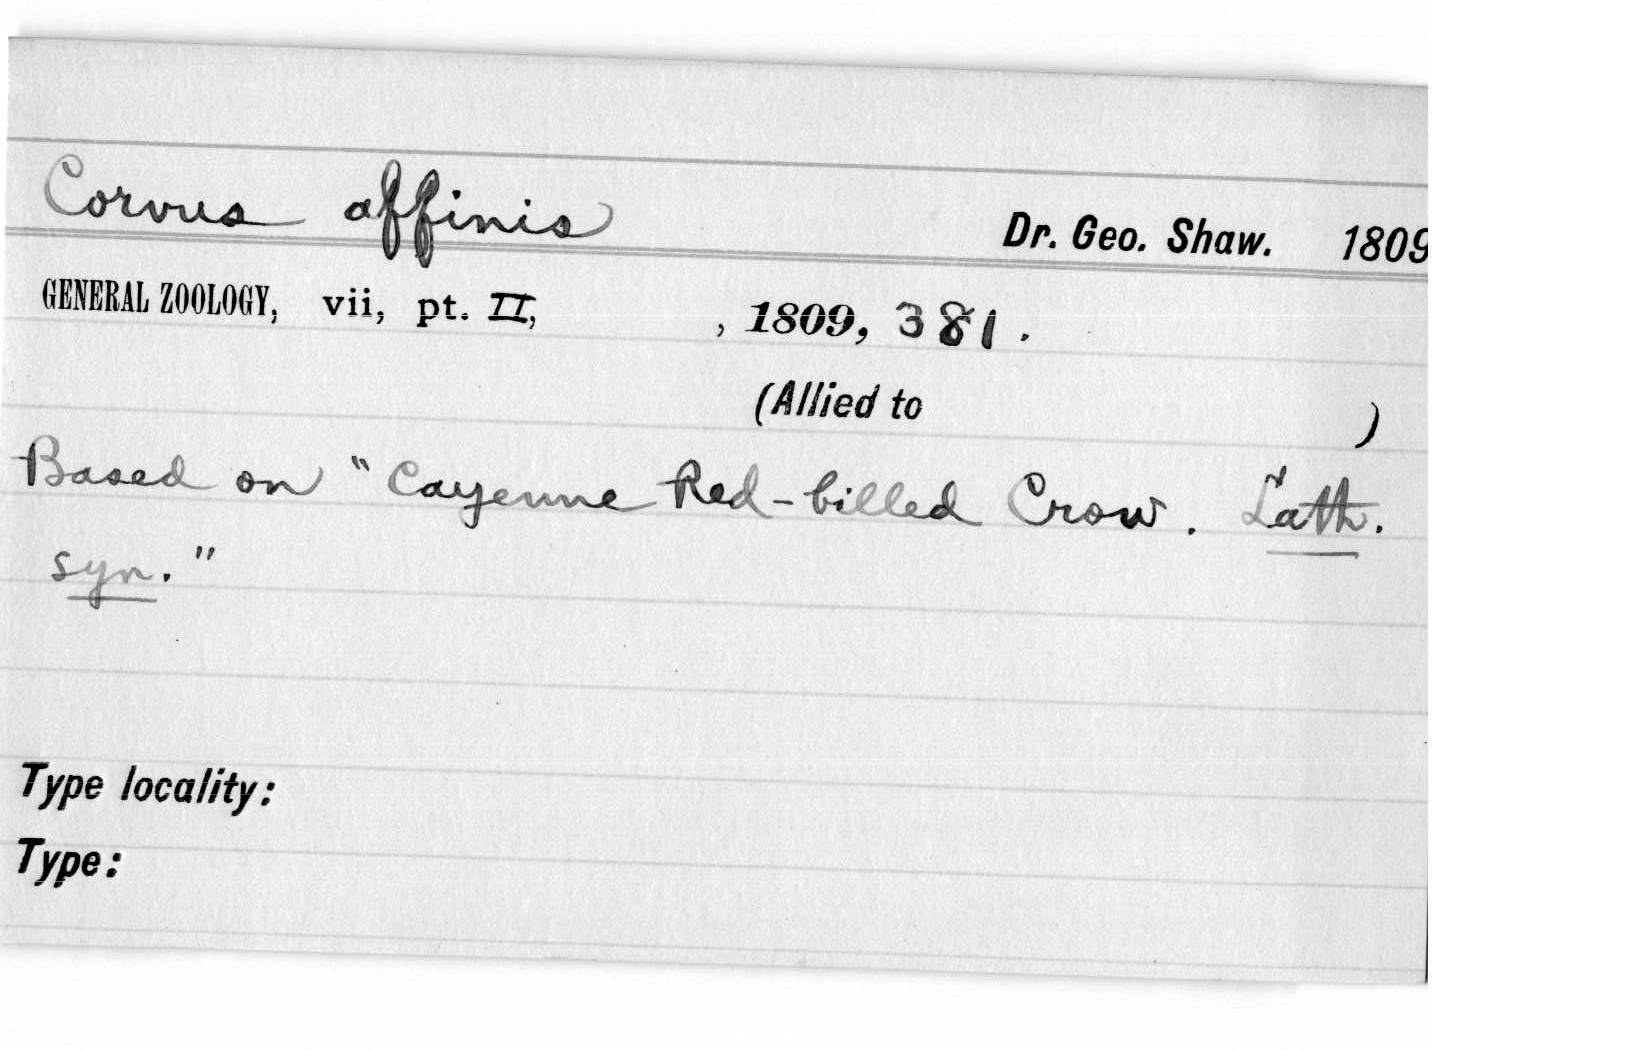 Corvus affinis Dr. Geo. Shaw. 1809
GENERAL ZOOLOGY, vii, pt. II, , 1809, 381.
(Allied to )
Based on "Cayenne Red-billed Crow. Lath.
syn."
Type locality:
Type: